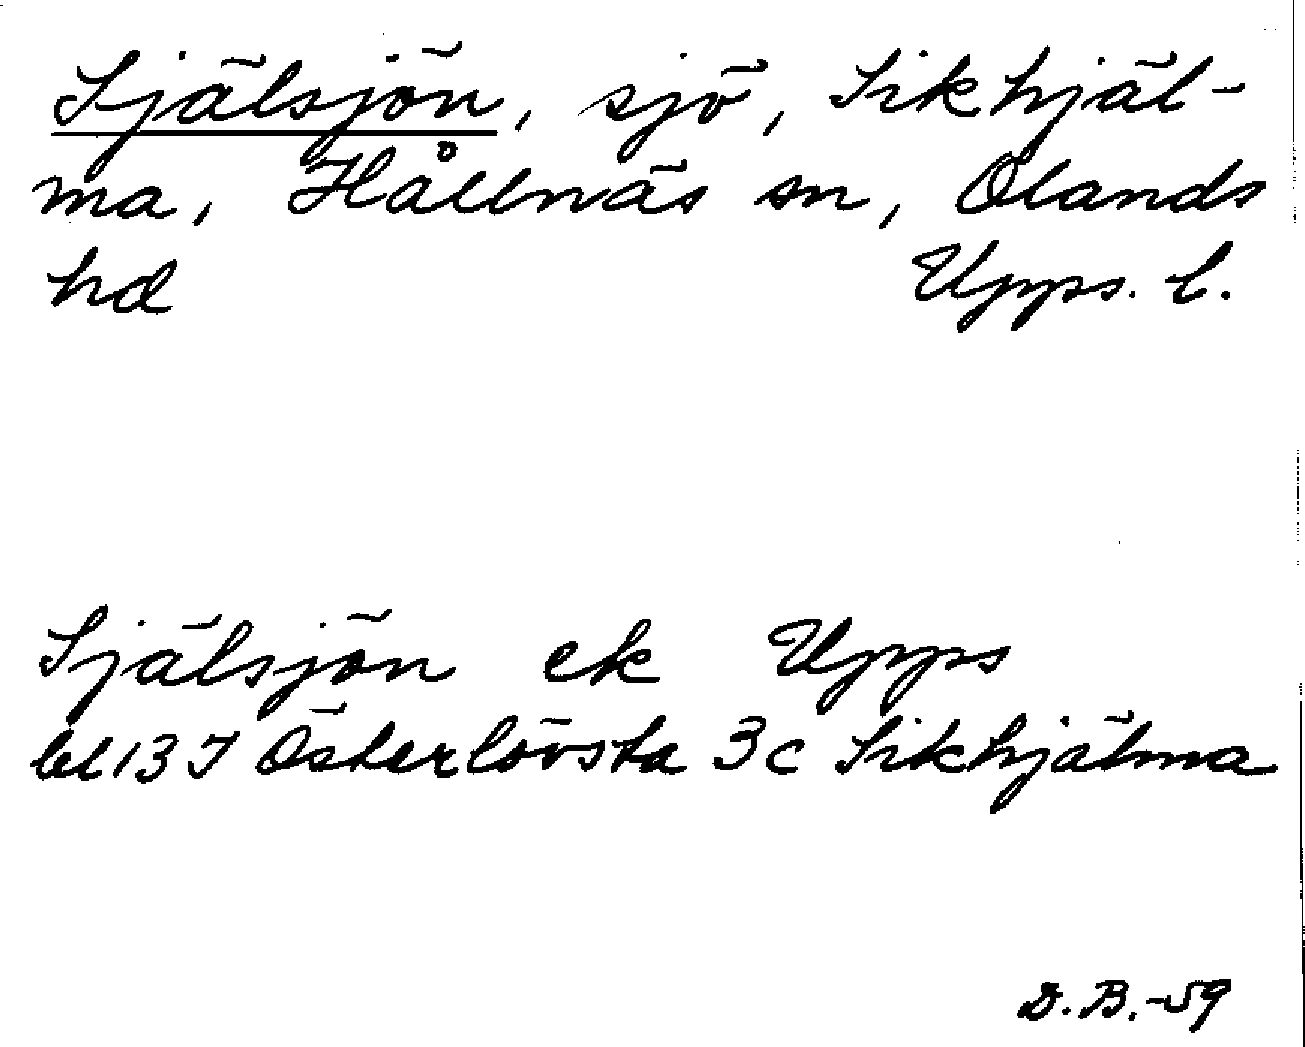 Själsjön, sjö, Sikhjäl-
ma, Hållnäs sn, Olands
hd Upps. l.
Själsjön ek Upps
bl 13 I Österlövsta 3c Sikhjälma
D.B.-59